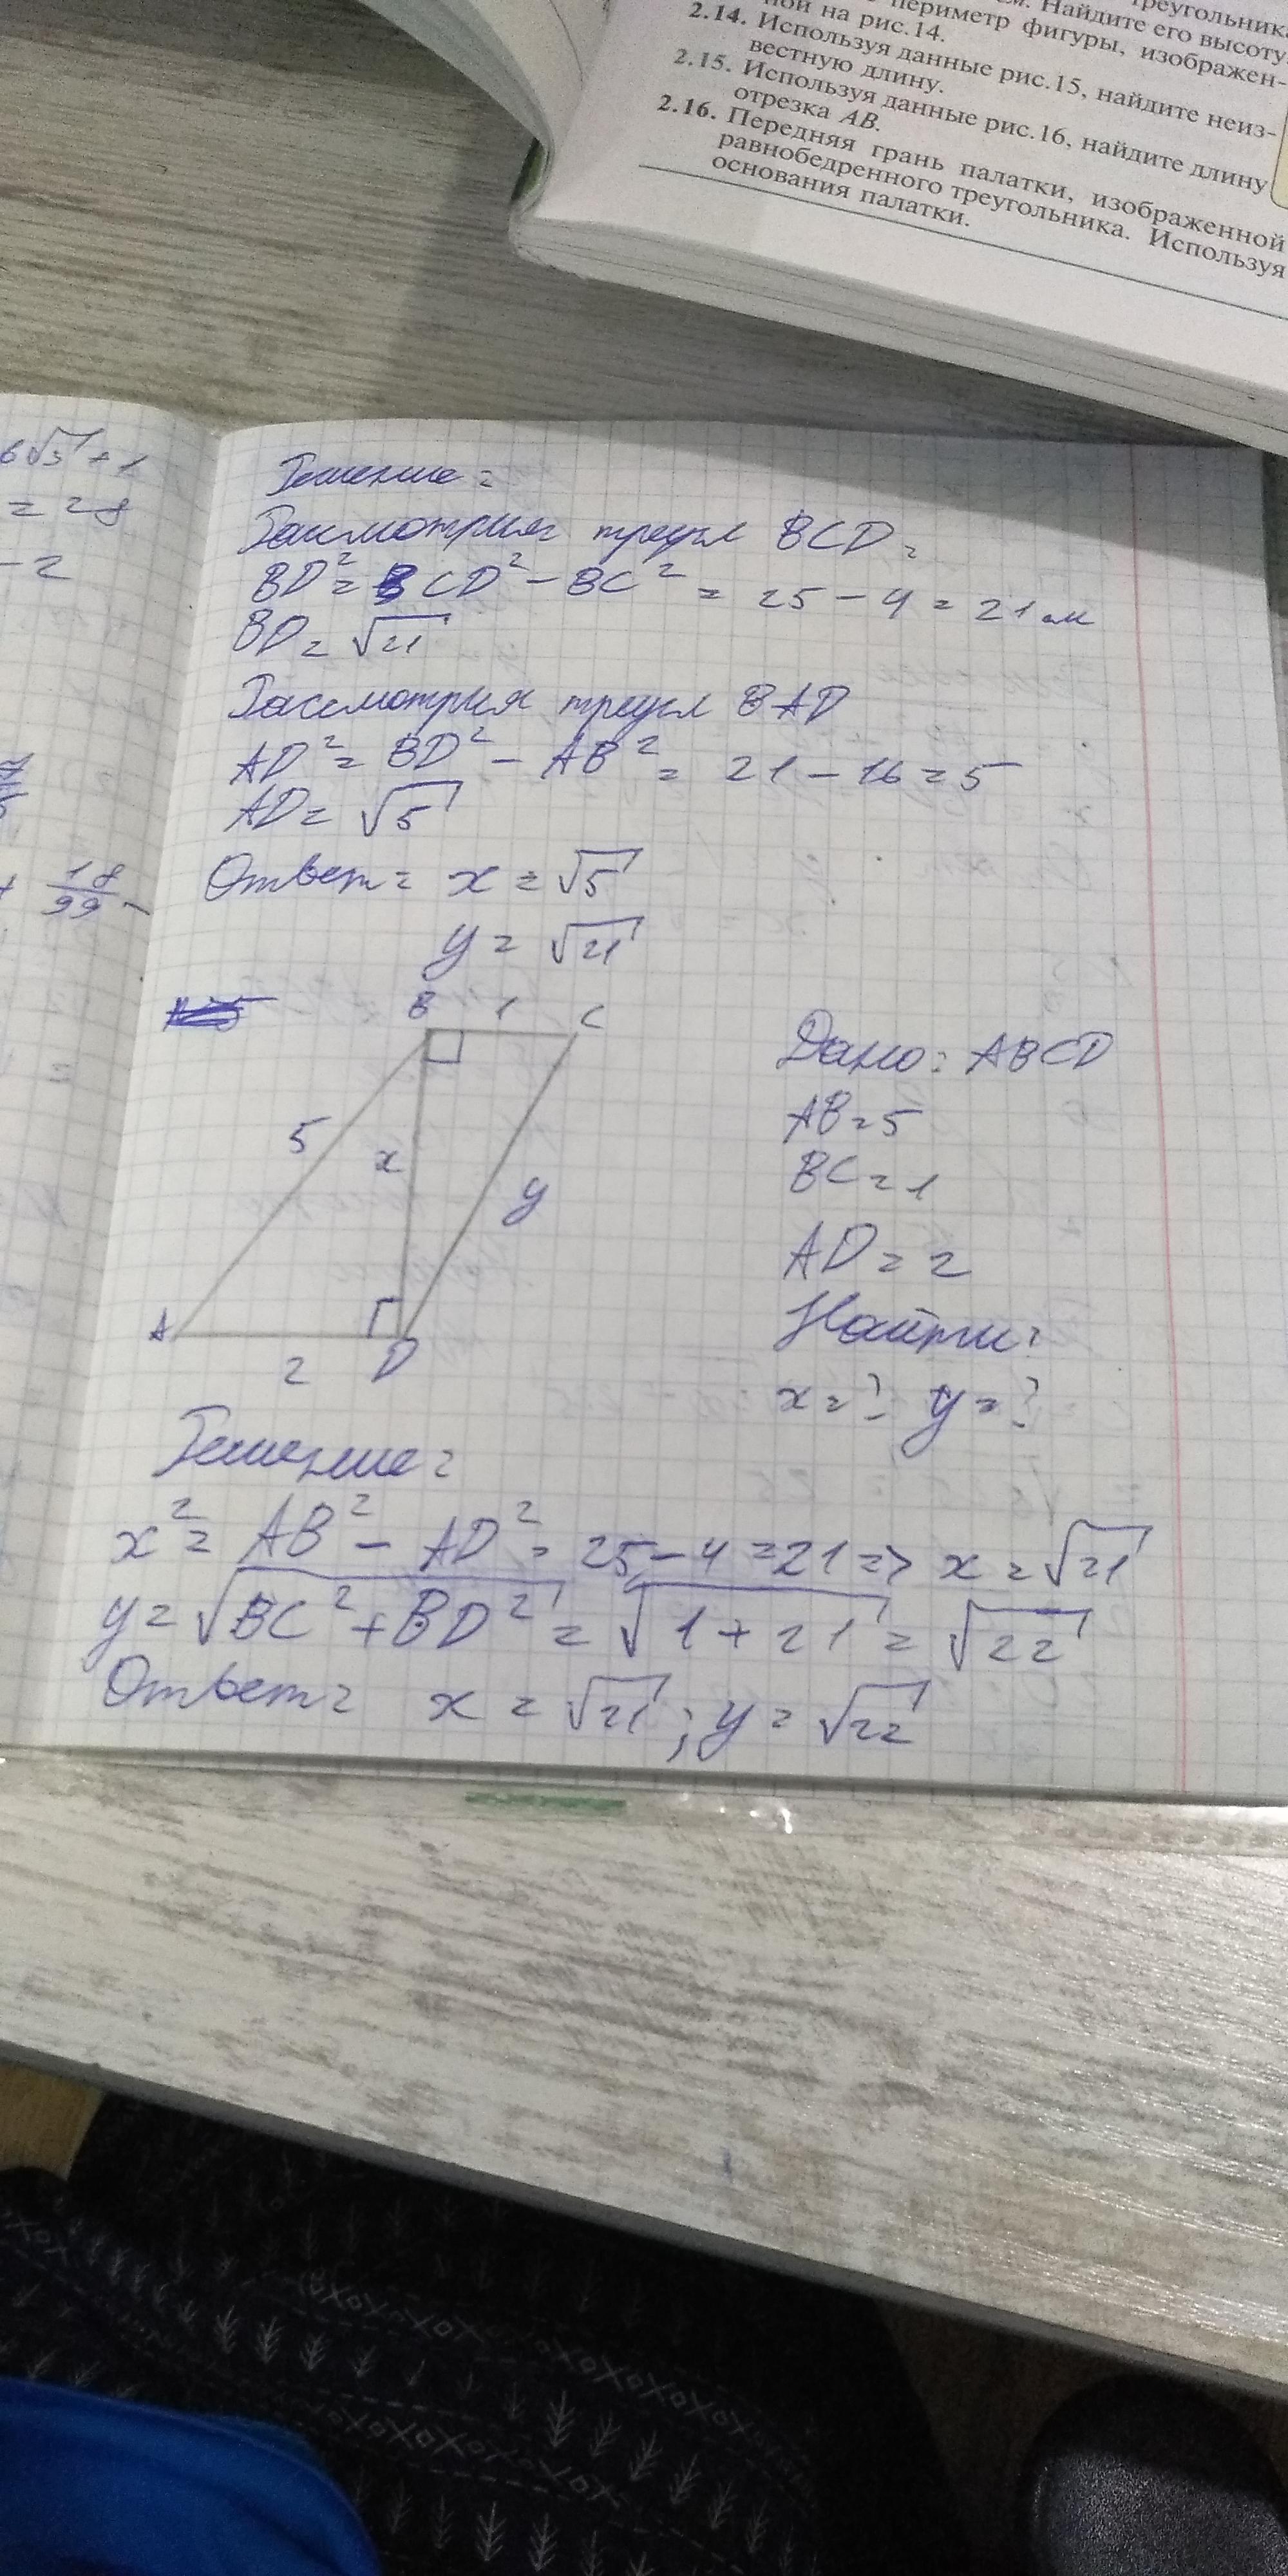 треугольника
см. Найдите его высоту.
периметр фигуры, изображен-
ной на рис.14.
2.14. Используя данные рис.15, найдите неиз-
вестную длину.
2.15. Используя данные рис.16, найдите длину
отрезка AB.
2.16. Передняя грань палатки, изображенной
равнобедренного треугольника. Используя
основания палатки.
6√5 + 1
= 28
- 2
+ 18/99 -
Решение:
Рассмотрим треугл BCD:
BD² = CD² - BC² = 25 - 4 = 21 см
BD = √21
Рассмотрим треугл BAD
AD² = BD² - AB² = 21 - 16 = 5
AD = √5
Ответ: x = √5
y = √21
B 1 C
5 x y
A D
2
Дано: ABCD
AB = 5
BC = 1
AD = 2
Найти:
x = ? y = ?
Решение:
x² = AB² - AD² = 25 - 4 = 21 => x = √21
y = √BC² + BD² = √1 + 21 = √22
Ответ: x = √21; y = √22